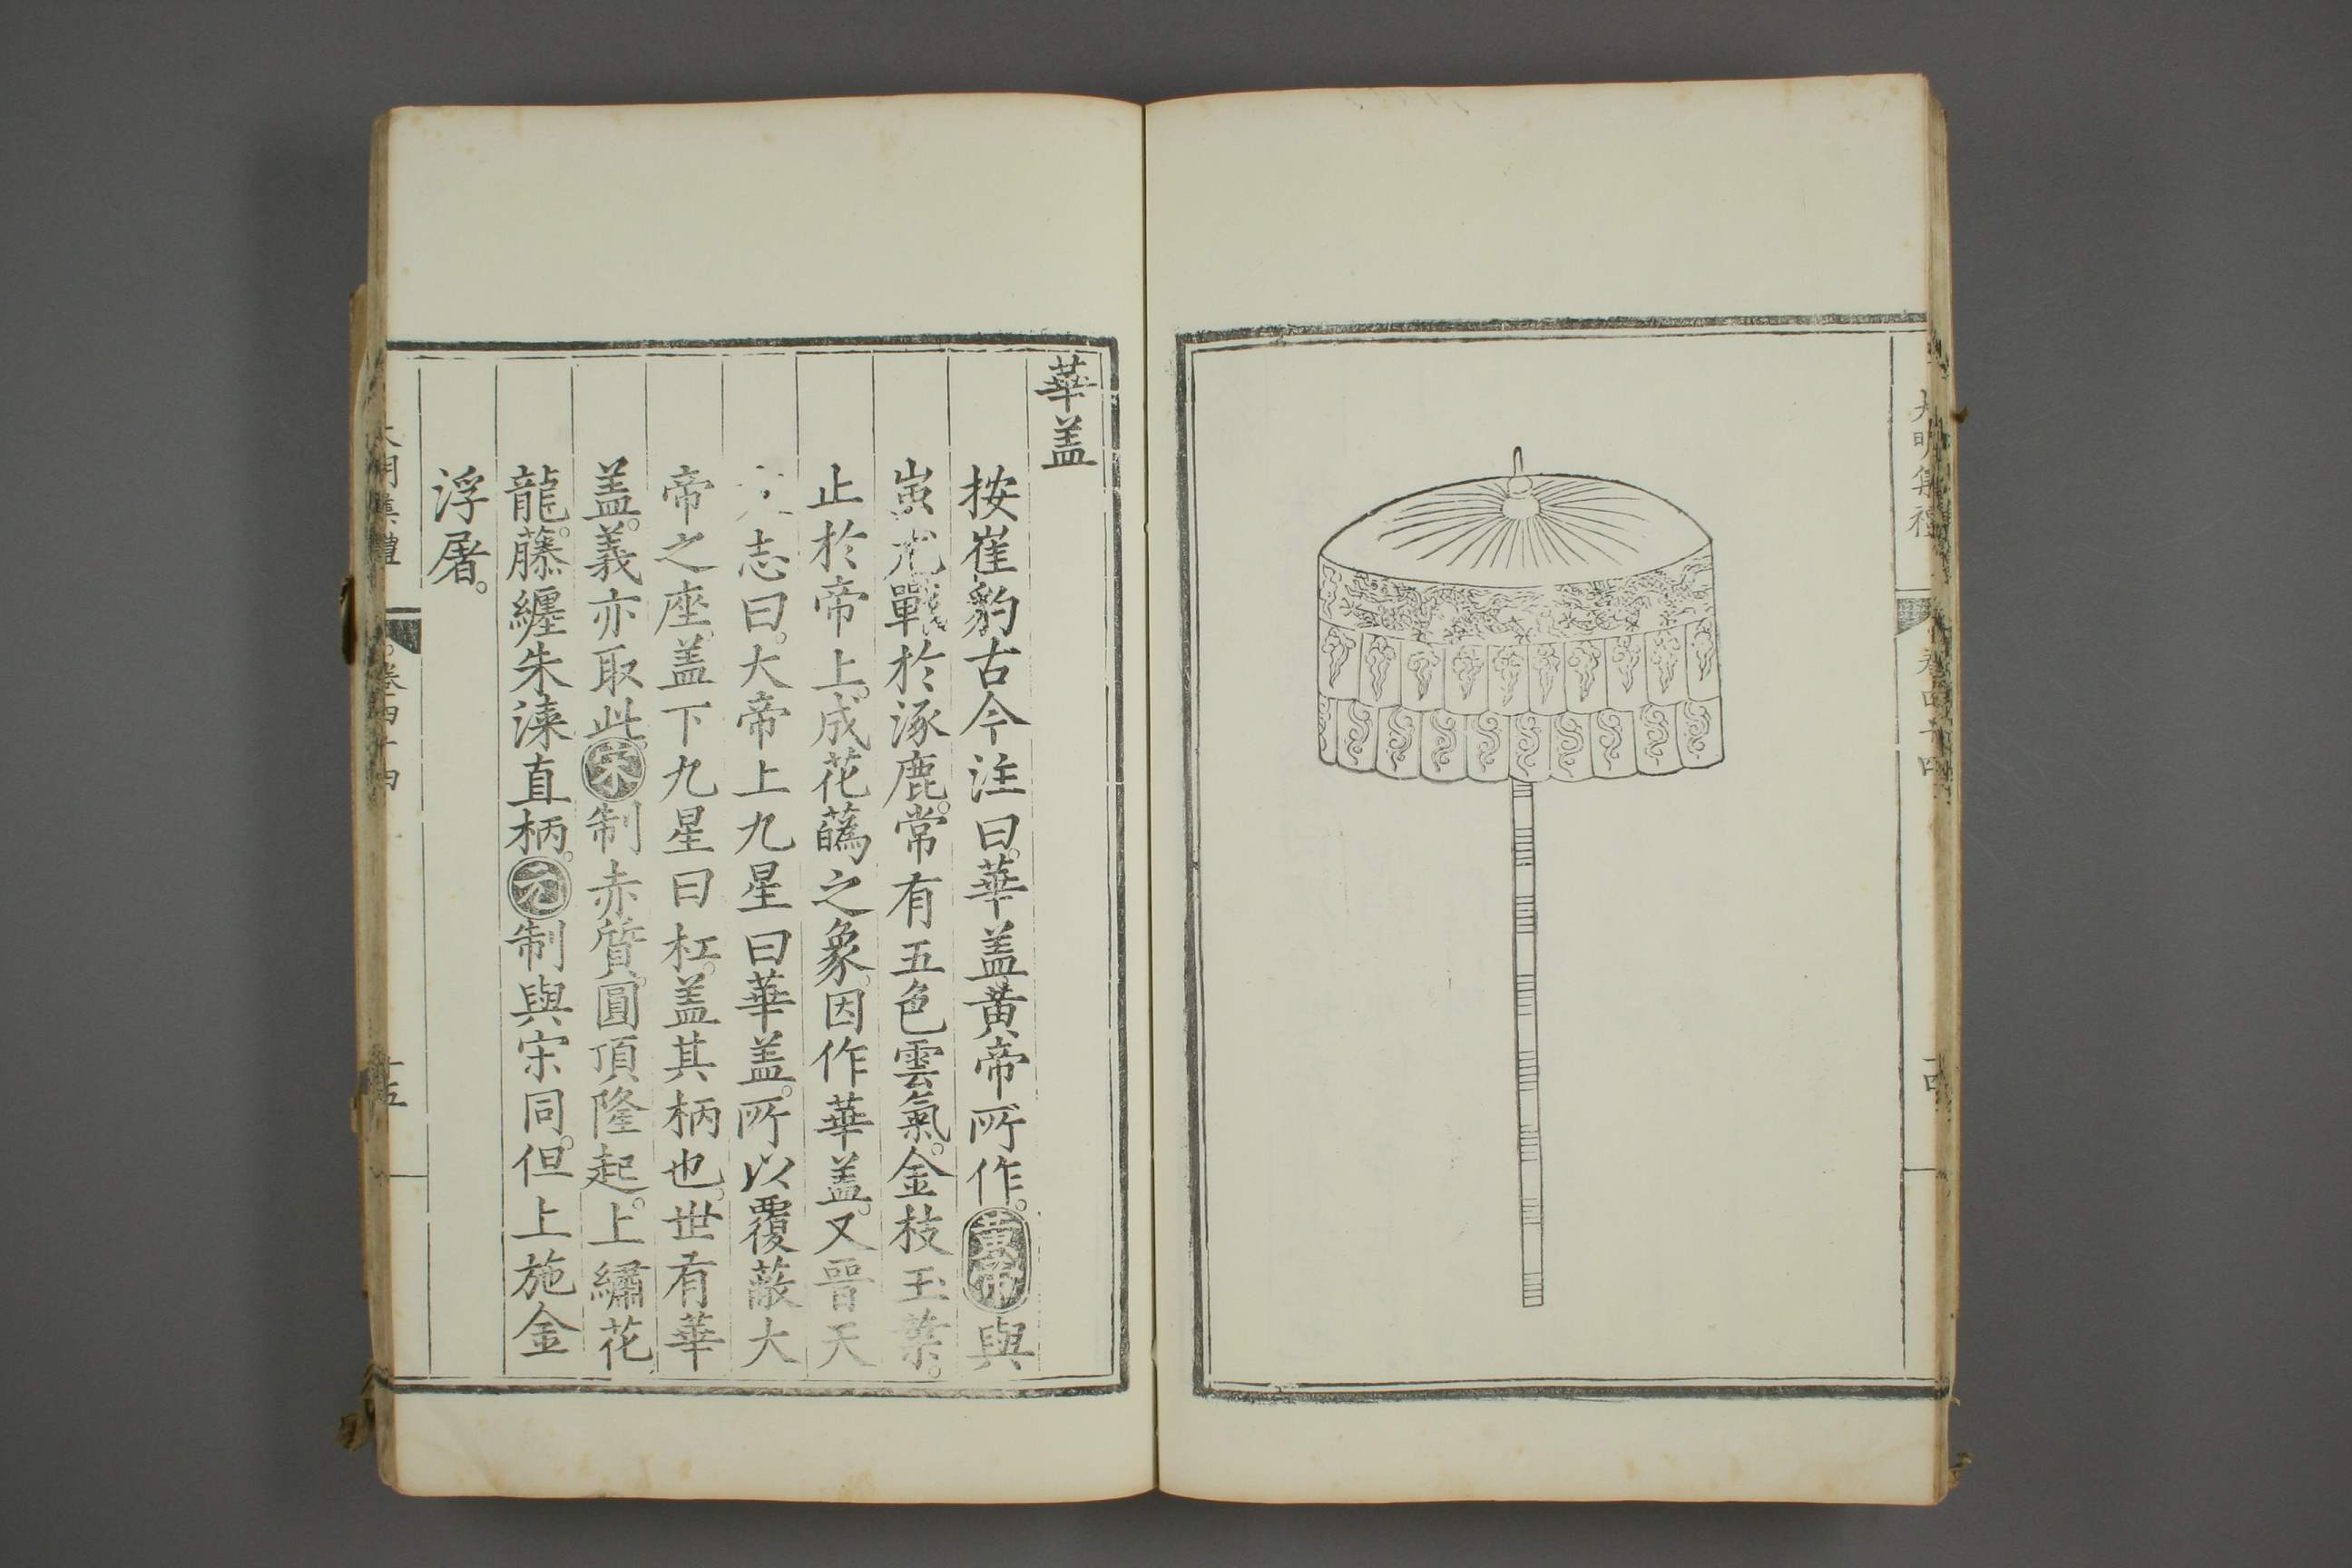 大明集禮 卷四十四 十四
華盖
按崔豹古今注曰。華盖黄帝所作。黄帝與
蚩尤戰於涿鹿。常有五色雲氣。金枝玉葉。
止於帝上。成花蘤之象。因作華盖。又晉天
志曰。大帝上九星曰華盖。所以覆蔽大
帝之座。盖下九星曰杠。盖其柄也。世有華
盖。義亦取此。宋制赤質。圓頂隆起。上繡花
龍。藤纒朱漆直柄。元制與宋同。但上施金
浮屠。
大明集禮 卷四十四 十五